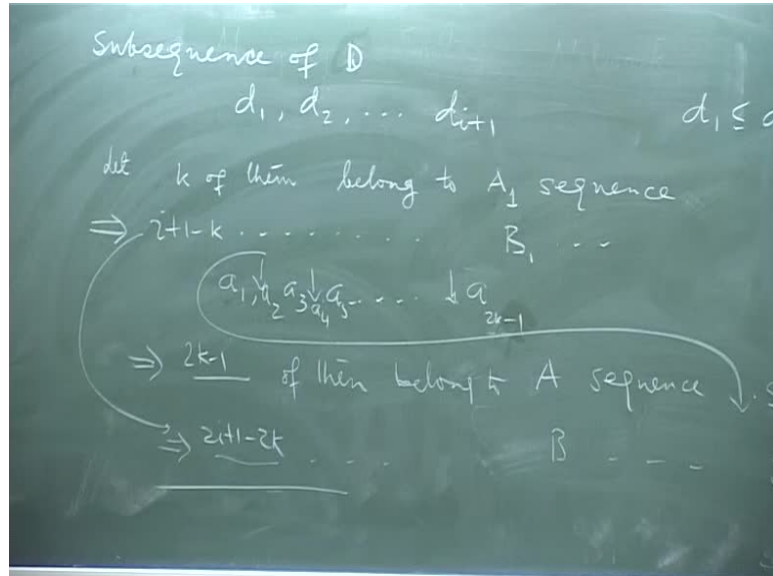 Subsequence of D
d₁, d₂, ... dᵢ₊₁ d₁ ≤ d
Let k of them belong to A₁ sequence
⇒ i+1-k ........ B₁ ...
a₁, a₂ a₃ a₄ a₅ .... a₂ₖ₋₁
⇒ 2k-1 of them belong to A sequence
⇒ 2i+1-2k .... B ....